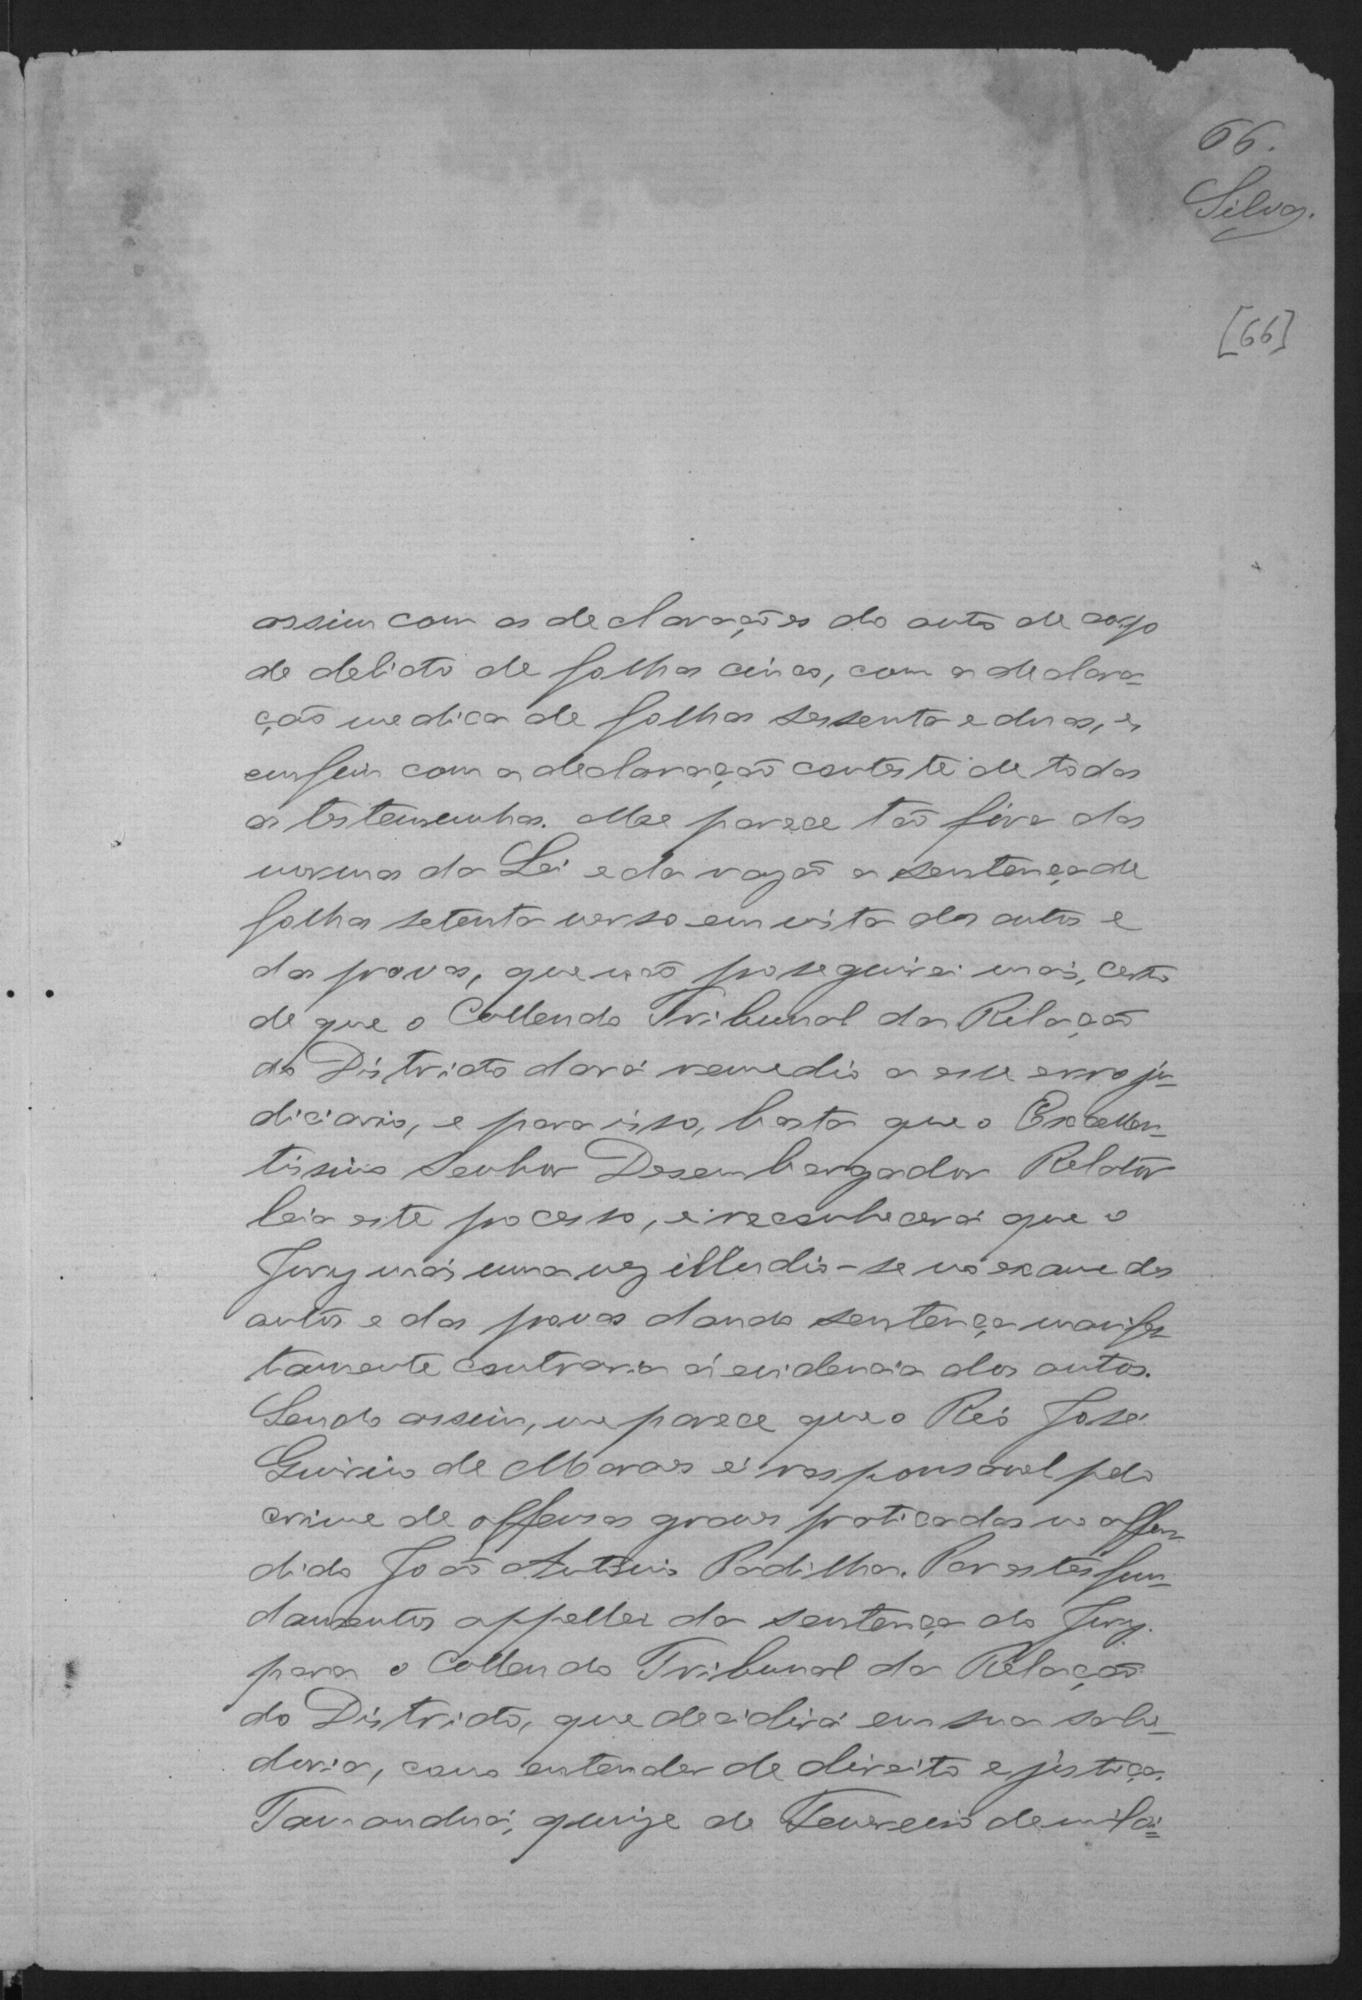 66.
Silva.
[66]
assim com as declarações do auto de corpo
de delicto de folhas cinco, com a declara-
ção medica de folhas sessenta e duas, e
emfim com a declaração conteste de todas
as testemunhas. Me parece tão fóra das
normas da Lei e da razão a sentença de
folhas setenta verso em vista dos autos e
das provas, que não proseguirei mais, certo
de que o Collendo Tribunal da Relação
do Districto dará remedio a esse erro ju-
diciario, e para isso, basta que o Excellen-
tissimo Senhor Desembargador Relator
leia este processo, e reconhecerá que o
Jury mais uma vez illudio-se no exame dos
autos e das provas dando sentença manifes-
tamente contraria á evidencia dos autos.
Sendo assim, me parece que o Réo José
de Moraes é responsavel pelo
crime de offensas graves praticadas no offen-
dido João Antonio Padilha. Por estes fun-
damentos appellei da sentença do Jury
para o Collendo Tribunal da Relação
do Districto, que decidirá em sua sabe-
doria, como entender de direito e justiça.
Tamanduá, quinze de Fevereiro de mil oi=